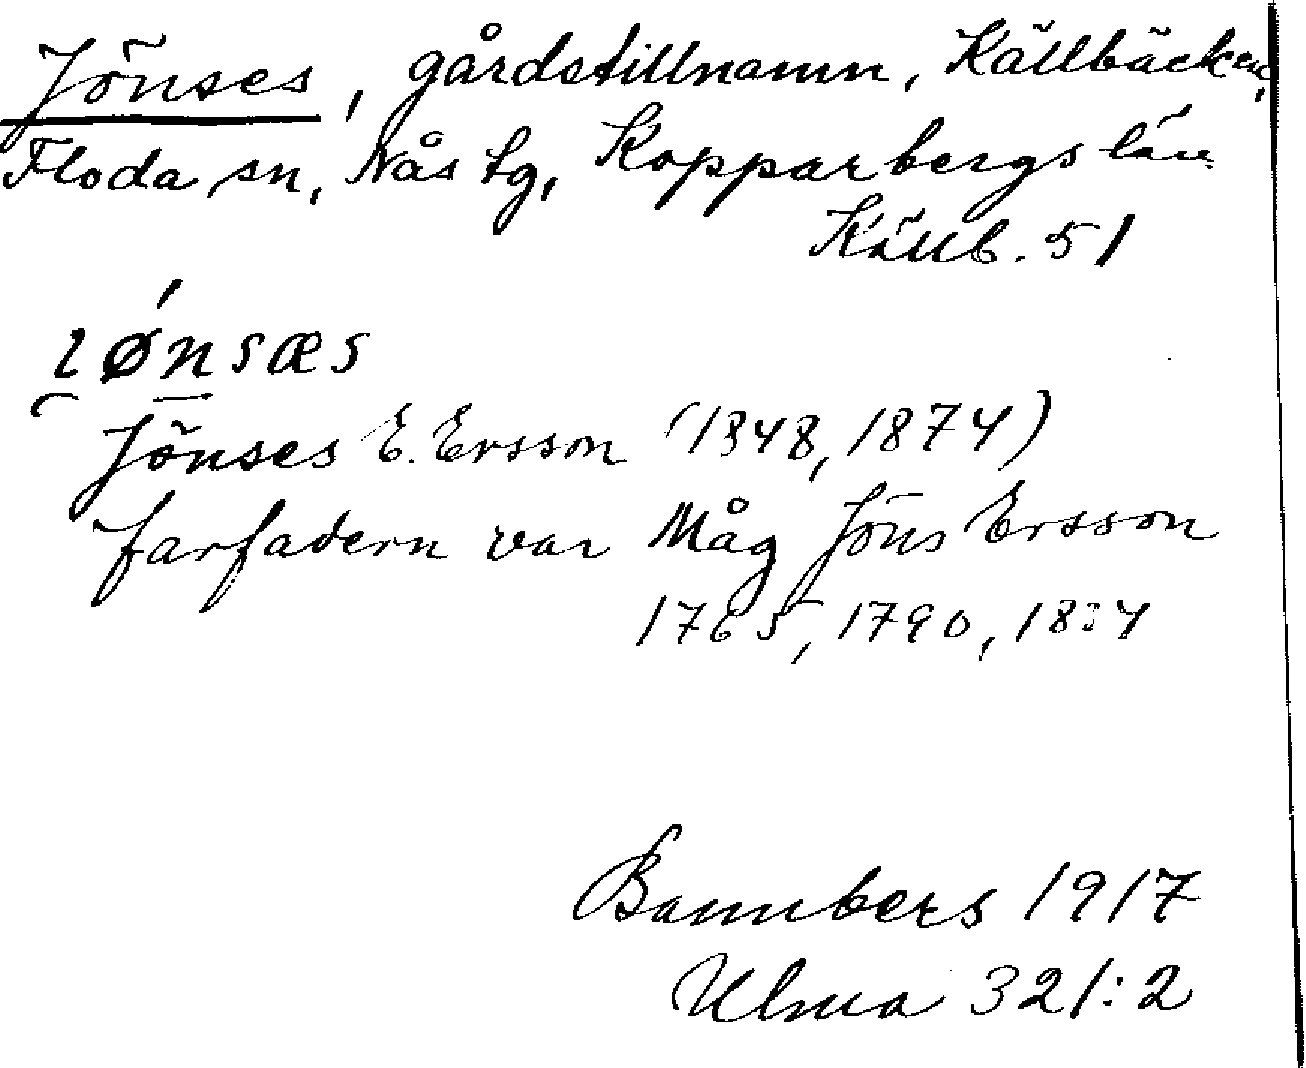 Jönses, gårdstillnamn, Källbäcken,
Floda sn, Nås tg, Kopparbergs län
Källb. 51
Jönses E. Ersson (1848, 1874)
farfadern var Måg Jöns Ersson
1765, 1790, 1834
Bannbers 1917
Ulma 321:2